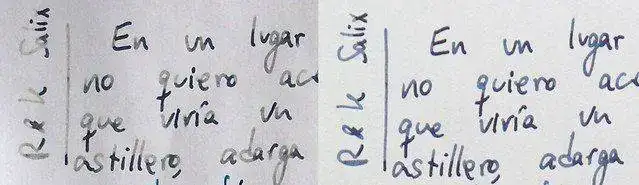 R&K Salix
En un lugar
no quiero aco
que vivía un
astillero, adarga
R&K Salix
En un lugar
no quiero aco
que vivía un
astillero, adarga